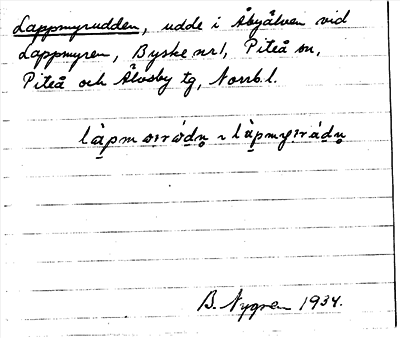 Lappmyrudden, udde i Åbyälven vid
Lappmyren, Byske nr 1, Piteå sn,
Piteå och Älvsby tg, Norrb. l.
B. Nygren 1934.